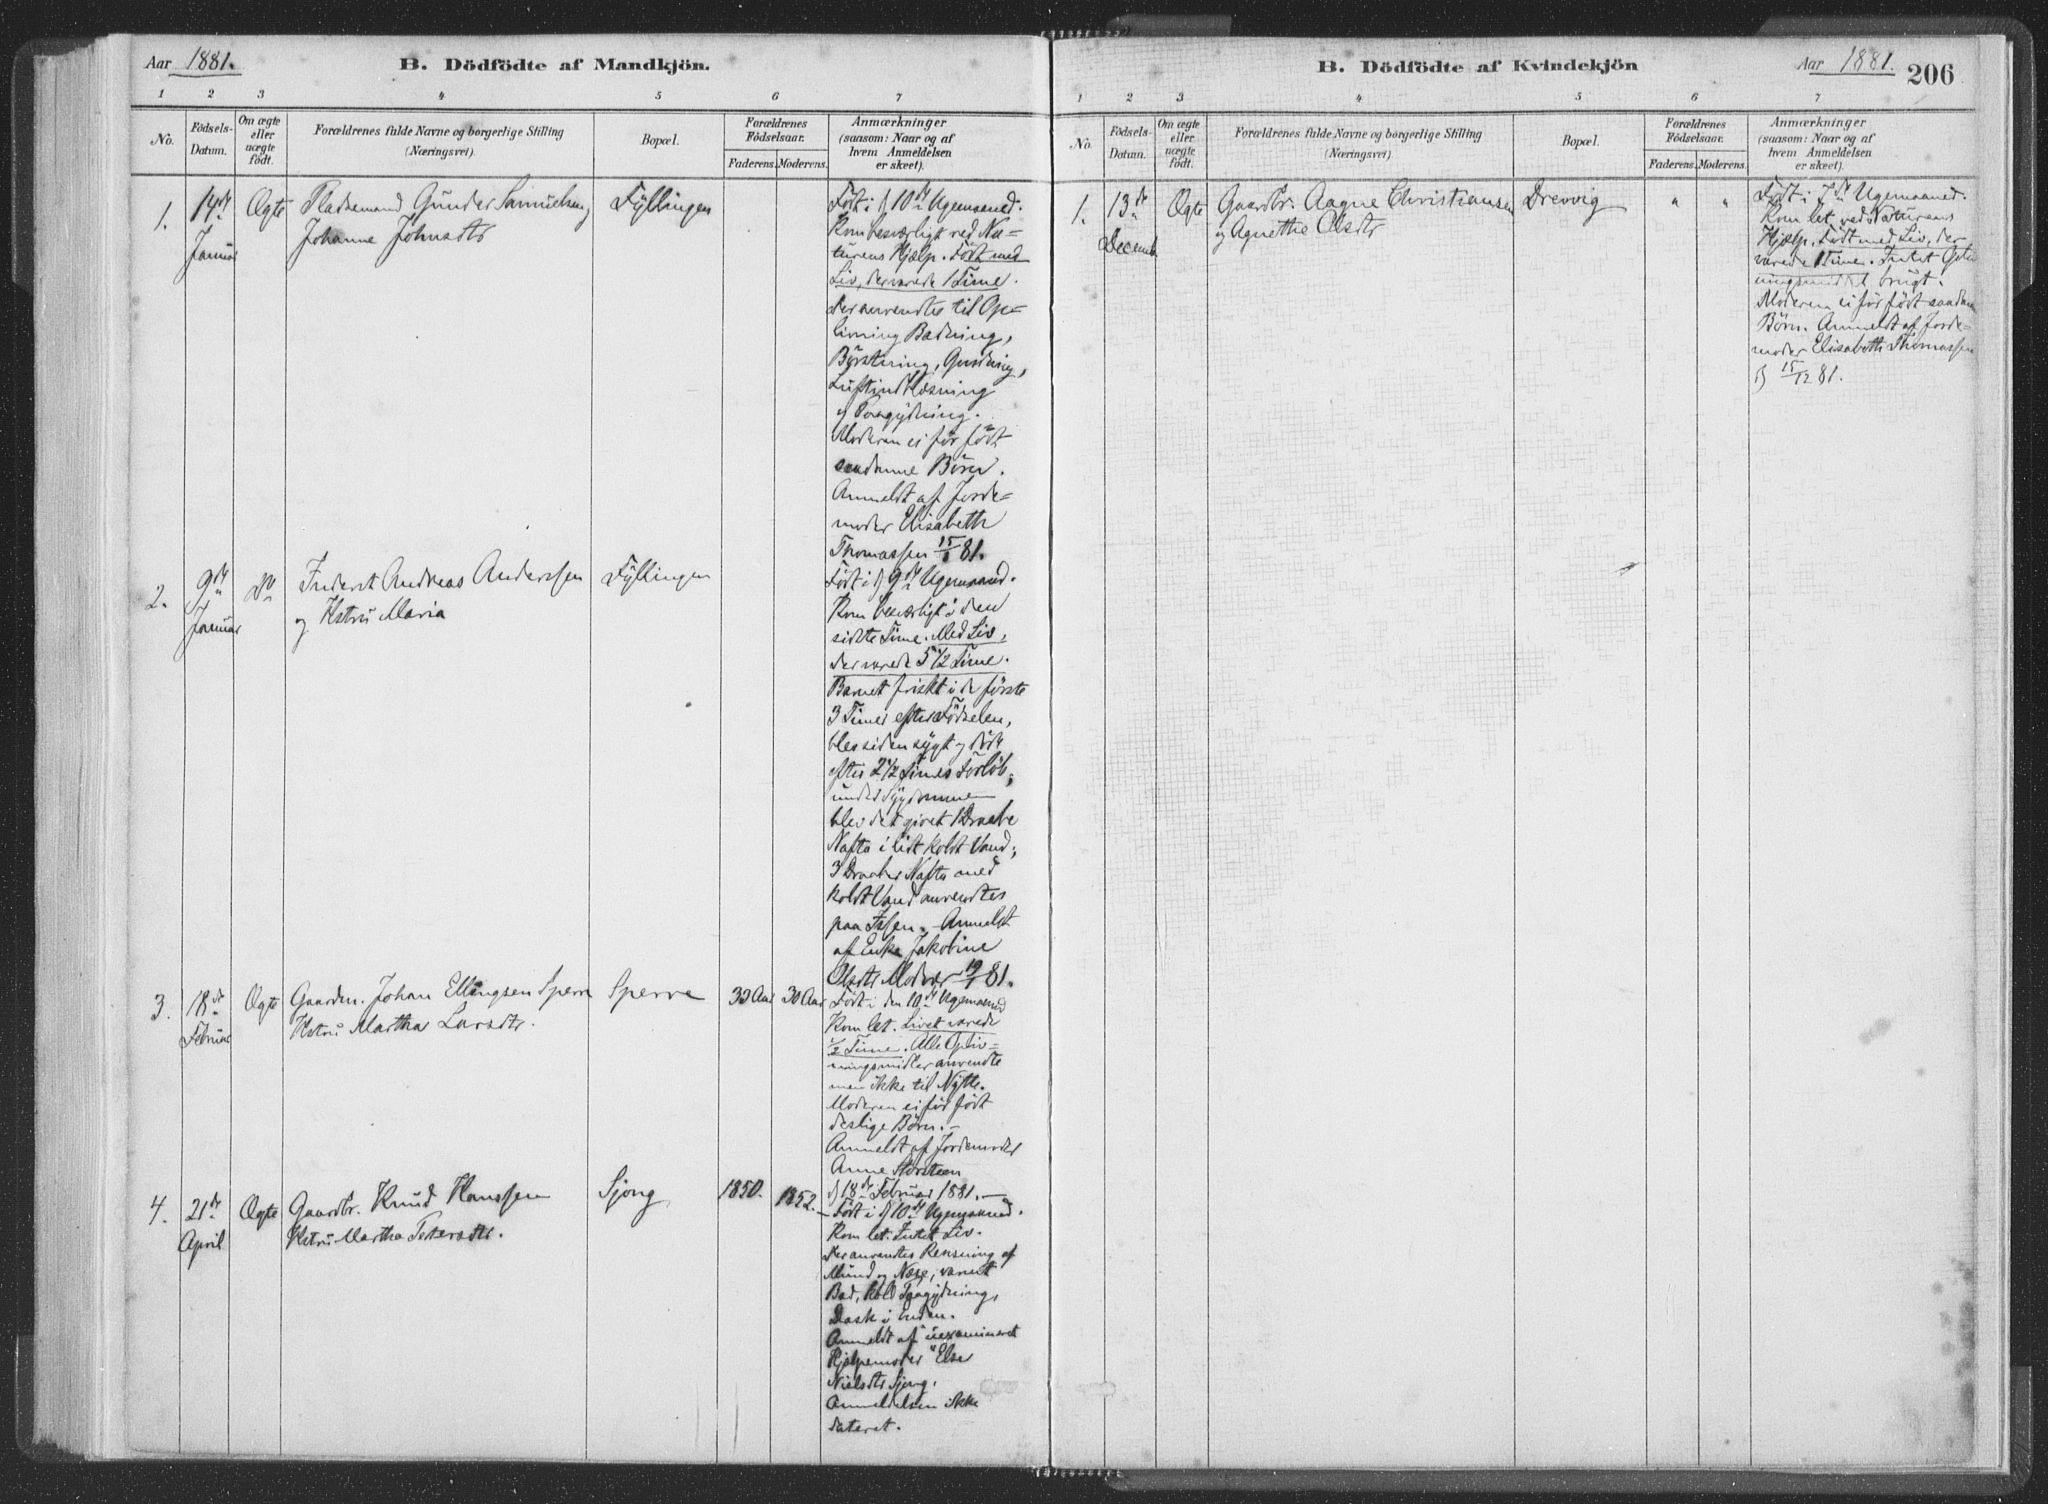 Aar 1881.
B. Dödfödte af Mandkjön.
1 2 3 4 5 6 7
No. Födsels-Datum. Om ægte eller uægte födt. Forældrenes fulde Navne og borgerlige Stilling (Næringsvei). Bopæl. Forældrenes Födselsaar. Faderens. Moderens. Anmærkninger (saasom: Naar og af hvem Anmeldelsen er skeet).
1. 14de Januar Ægte Pladsemand Gunder Samuelsen og
Johanne Johnsdtr Fyllingen
Født i d 10de Ugemaaned.
Kom besværligt ved Na-
turens Hjælp. Født med
Liv, der varede 1 Time.
Der anvendtes til Op-
livning Badning,
Børstning, Gnidning,
Luftindblæsning
og Paagydning.
Moderen ei før født
saadanne Børn.
Anmeldt af Jorde-
moder Elisabeth
Thomassen 15/1 81.
2. 9de Januar Do Andreas Anderssen
og Hstru Maria Fyllingen
Født i d 9de Ugemaaned.
Kom besværligt i den
sidste Time. Med Liv,
der varede 5 1/2 Time.
Barnet friskt i de første
3 Timer efter Fødselen,
blev siden sygt og døde
efter 2 1/2 Times Forløb;
under Sygdommen
blev det givet 1 Draabe
Nafta i lidt koldt Vand;
3 Draaber Nafta med
koldt Vand anvendtes
paa Issen. Anmeldt
af Enke Jakobine
Olsdtr Modvær 19/1 81.
3. 18de Februar Ægte Gaardm. Johan Ellingsen Sperre
Hstru Martha Larsdtr. Sperre 33 Aar 30 Aar
Født i den 10de Ugemaaned
Kom let. Livet varede
1/2 Time. Alle Opliv-
ningsmidler anvendte
men ikke til Nytte.
Moderen ei før født
deslige Børn.-
Anmeldt af Jordemoder
Anne Storsteen
d 18de Februar 1881.-
4. 21de April Ægte Gaardbr. Knud Hanssen
Hstru Martha Petersdtr. Sjong 1850. 1852.
Født i d 10de Ugemaaned.
Kom let. Intet Liv.
Der anvendtes Rensning af
Mund og Næse, varmt
Bad, kold Paagydning,
Dask i Enden.
Anmeldt af "uexamineret
Hjælpemoder" Else
Nielsdtr Sjong.
Anmeldelsen ikke
dateret.
B. Dödfödte af Kvindekjön
Aar 1881. 206
1 2 3 4 5 6 7
No. Födsels-Datum. Om ægte eller uægte födt. Forældrenes fulde Navne og borgerlige Stilling (Næringsvei) Bopæl. Forældrenes Födselsaar. Faderens. Moderens. Anmærkninger (saasom: Naar og af hvem Anmeldelsen er skeet).
1. 13de December Ægte Gaardbr. Aagne Christiansen
og Agnethe Olsdtr Drevvig " "
Født i 7de Ugemaaned.
Kom let, ved Naturens
Hjælp. Født med Liv, der
varede 1 Time. Intet Opliv-
ningsmiddel brugt.
Moderen ei før født saadanne
Børn. Anmeldt af Jorde-
moder Elisabeth Thomassen
d 15/12 81.